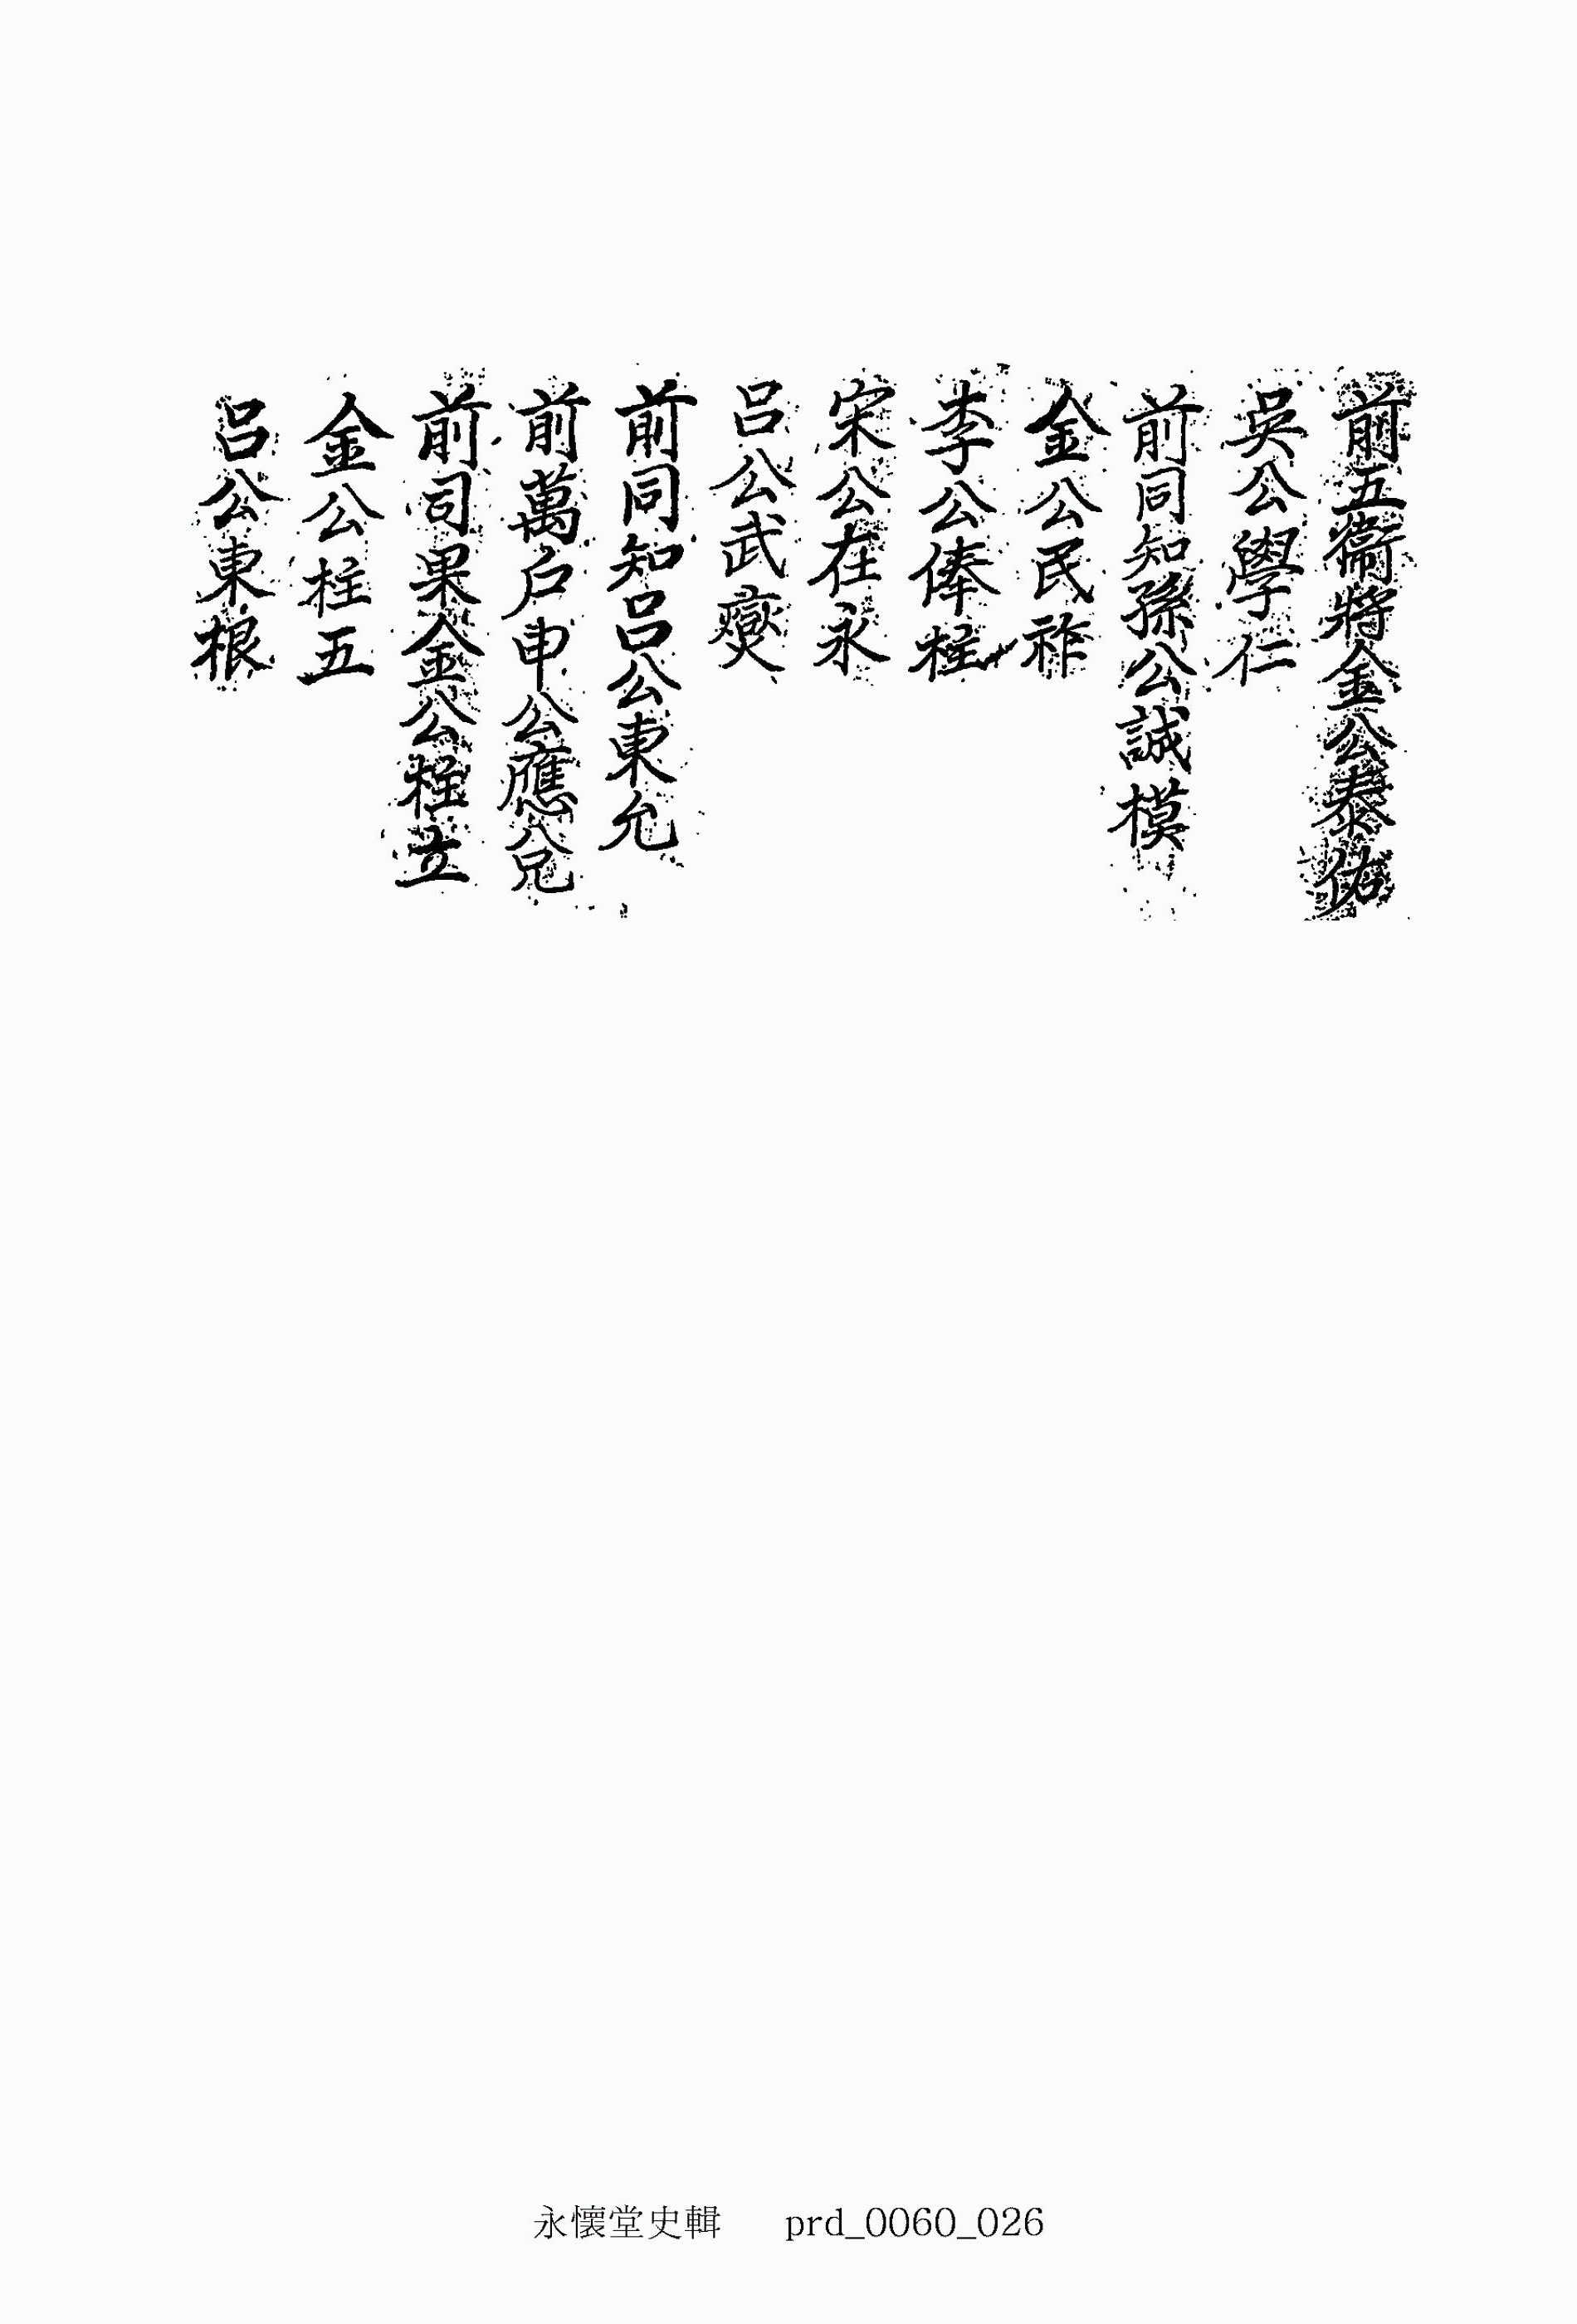 前五衛將金公泰佑
吳公學仁
前同知孫公誠模
金公民祚
李公俸柱
宋公在永
呂公武燮
前同知呂公東允
前萬戶申公應兌
前司果金公柱立
金公柱五
呂公東根
永懷堂史輯 prd_0060_026